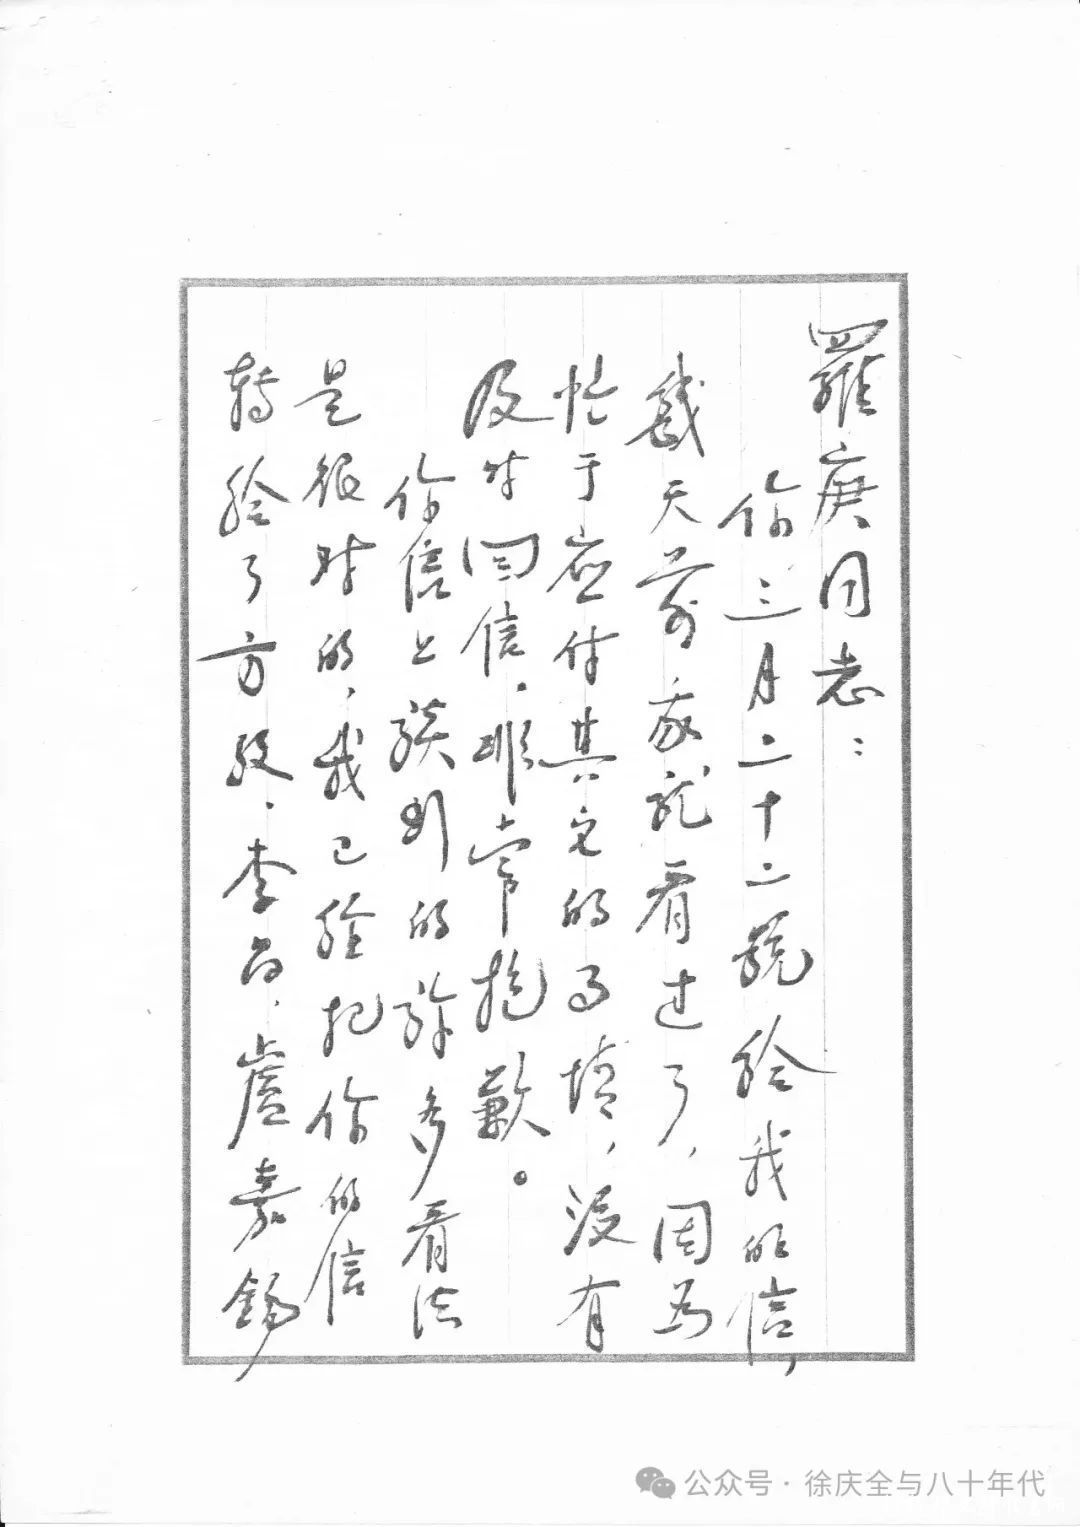 羅庚同志：
你三月二十二號给我的信，
幾天前我就看过了，因为
忙于应付其它的事情，没有
及时回信。非常抱歉。
你信上談到的許多看法
是很对的，我已经把你的信
转给了方毅、李昌、盧嘉錫
公众号·徐庆全与八十年代